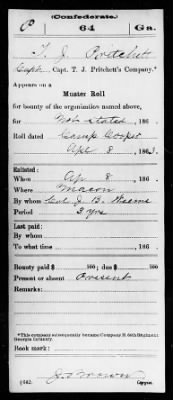 (Confederate.)
P 64 Ga.
T. J. Pritchett
Capt., Capt. T. J. Pritchett's Company.*
Appears on a
Muster Roll
for bounty of the organization named above,
for Not stated, 186 .
Roll dated Camp Cooper
Apl 8, 1863.
Enlisted:
When Ap 8, 186 .
Where Macon
By whom Col J. B. Weems
Period 3 yrs
Last paid:
By whom
To what time , 186 .
Bounty paid $ 100; due $ 100
Present or absent Present
Remarks:
*This company subsequently became Company H 64th Regiment
Georgia Infantry.
Book mark:
(642) Copyist.